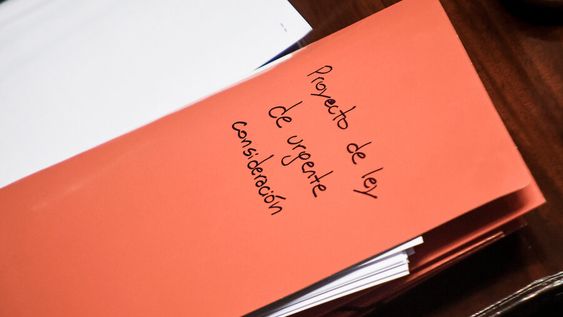 Proyecto de ley
de urgente
consideración